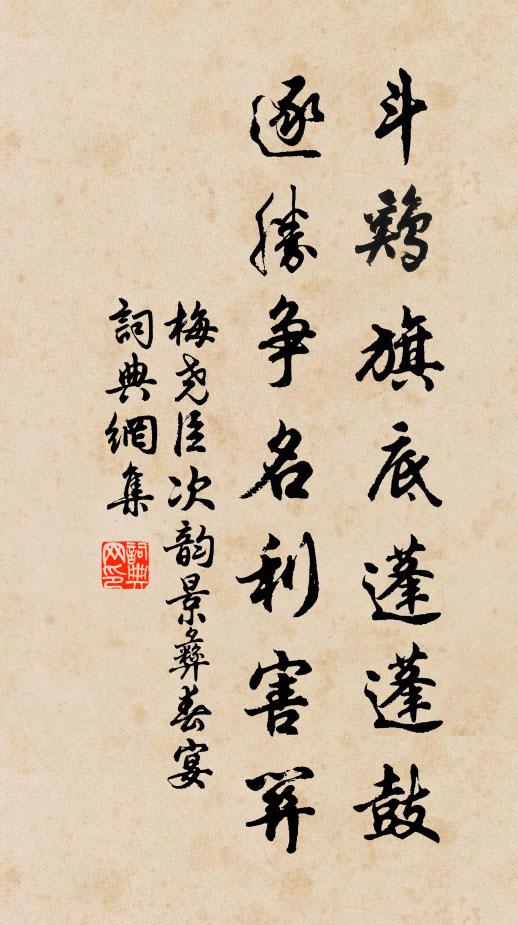 斗鷄旗底蓬蓬鼓
逐勝争名利害
梅尧臣次韵景彝春宴
詞典網集
詞典网印